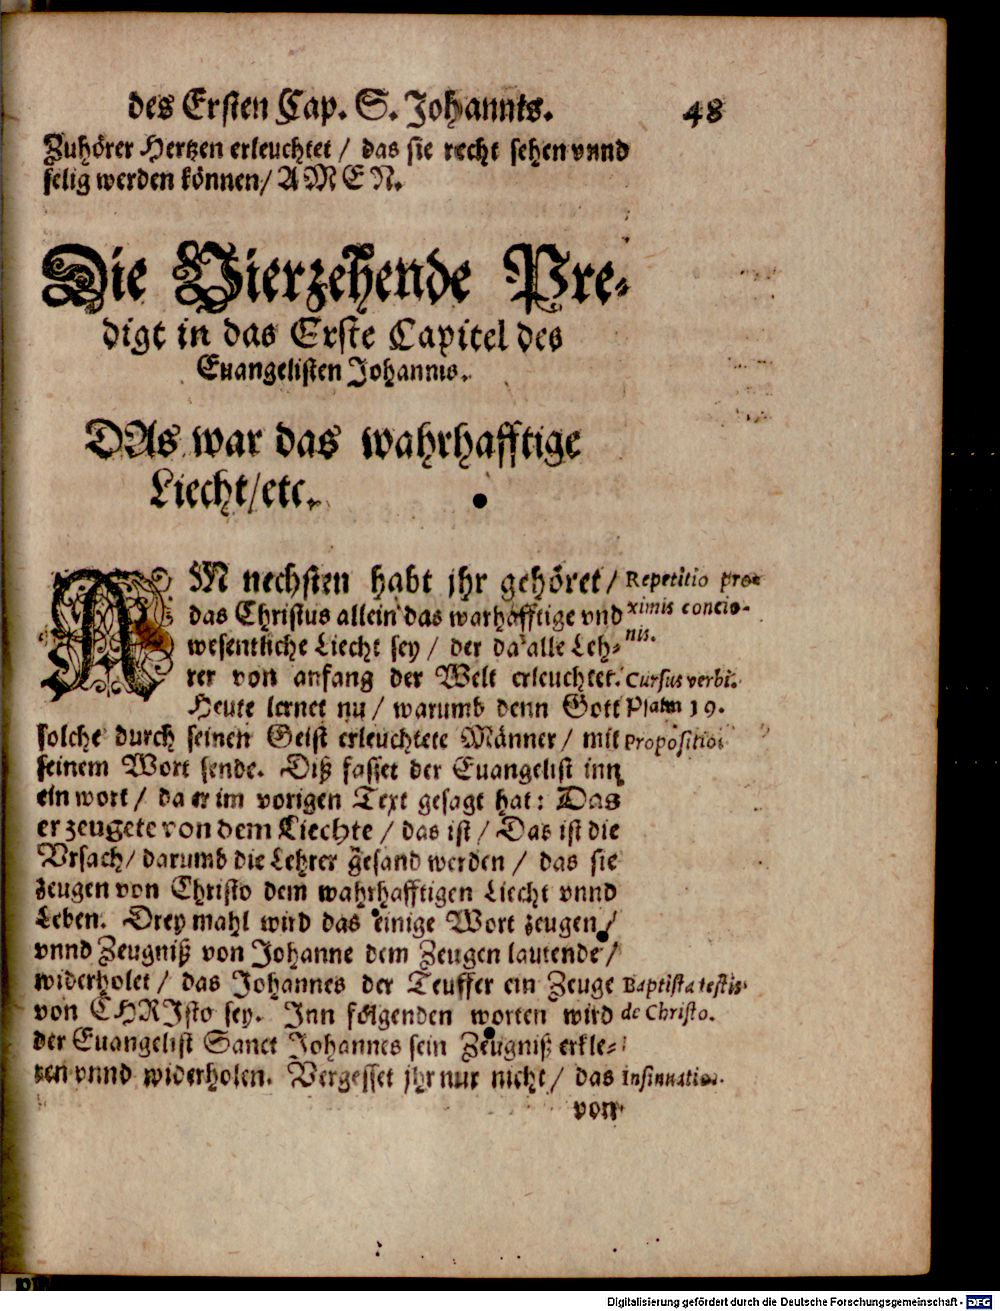 des Ersten Cap. S. Johannis. 48
Zuhörer Hertzen erleuchtet / das sie recht sehen vnnd
selig werden können / AMEN.
Die Vierzehende Pre-
digt in das Erste Capitel des
Euangelisten Johannis.
DAs war das wahrhafftige
Liecht / etc.
AM nechsten habt jhr gehöret /
das Christus allein das warhafftige vnd
wesentliche Liecht sey / der da alle Leh-
rer von anfang der Welt erleuchtet.
Heute lernet nu / warumb denn Gott
solche durch seinen Geist erleuchtete Männer / mit
seinem Wort sende. Diß fasset der Euangelist inn
ein wort / da er im vorigen Text gesagt hat: Das
er zeugete von dem Liechte / das ist / Das ist die
Vrsach / darumb die Lehrer gesand werden / das sie
zeugen von Christo dem wahrhafftigen Liecht vnnd
Leben. Drey mahl wird das einige Wort zeugen /
vnnd Zeugniß von Johanne dem Zeugen lautende /
widerholet / das Johannes der Teuffer ein Zeuge
von CHRIsto sey. Inn folgenden worten wird
der Euangelist Sanct Johannes sein Zeugniß erkle-
ren vnnd widerholen. Vergesset jhr nur nicht / das
von
Repetitio pro-
ximis concio-
nis.
Cursus verbi.
Psalm 19.
Propositio.
Baptista testis
de Christo.
Insinuatio.
Digitalisierung gefördert durch die Deutsche Forschungsgemeinschaft - DFG